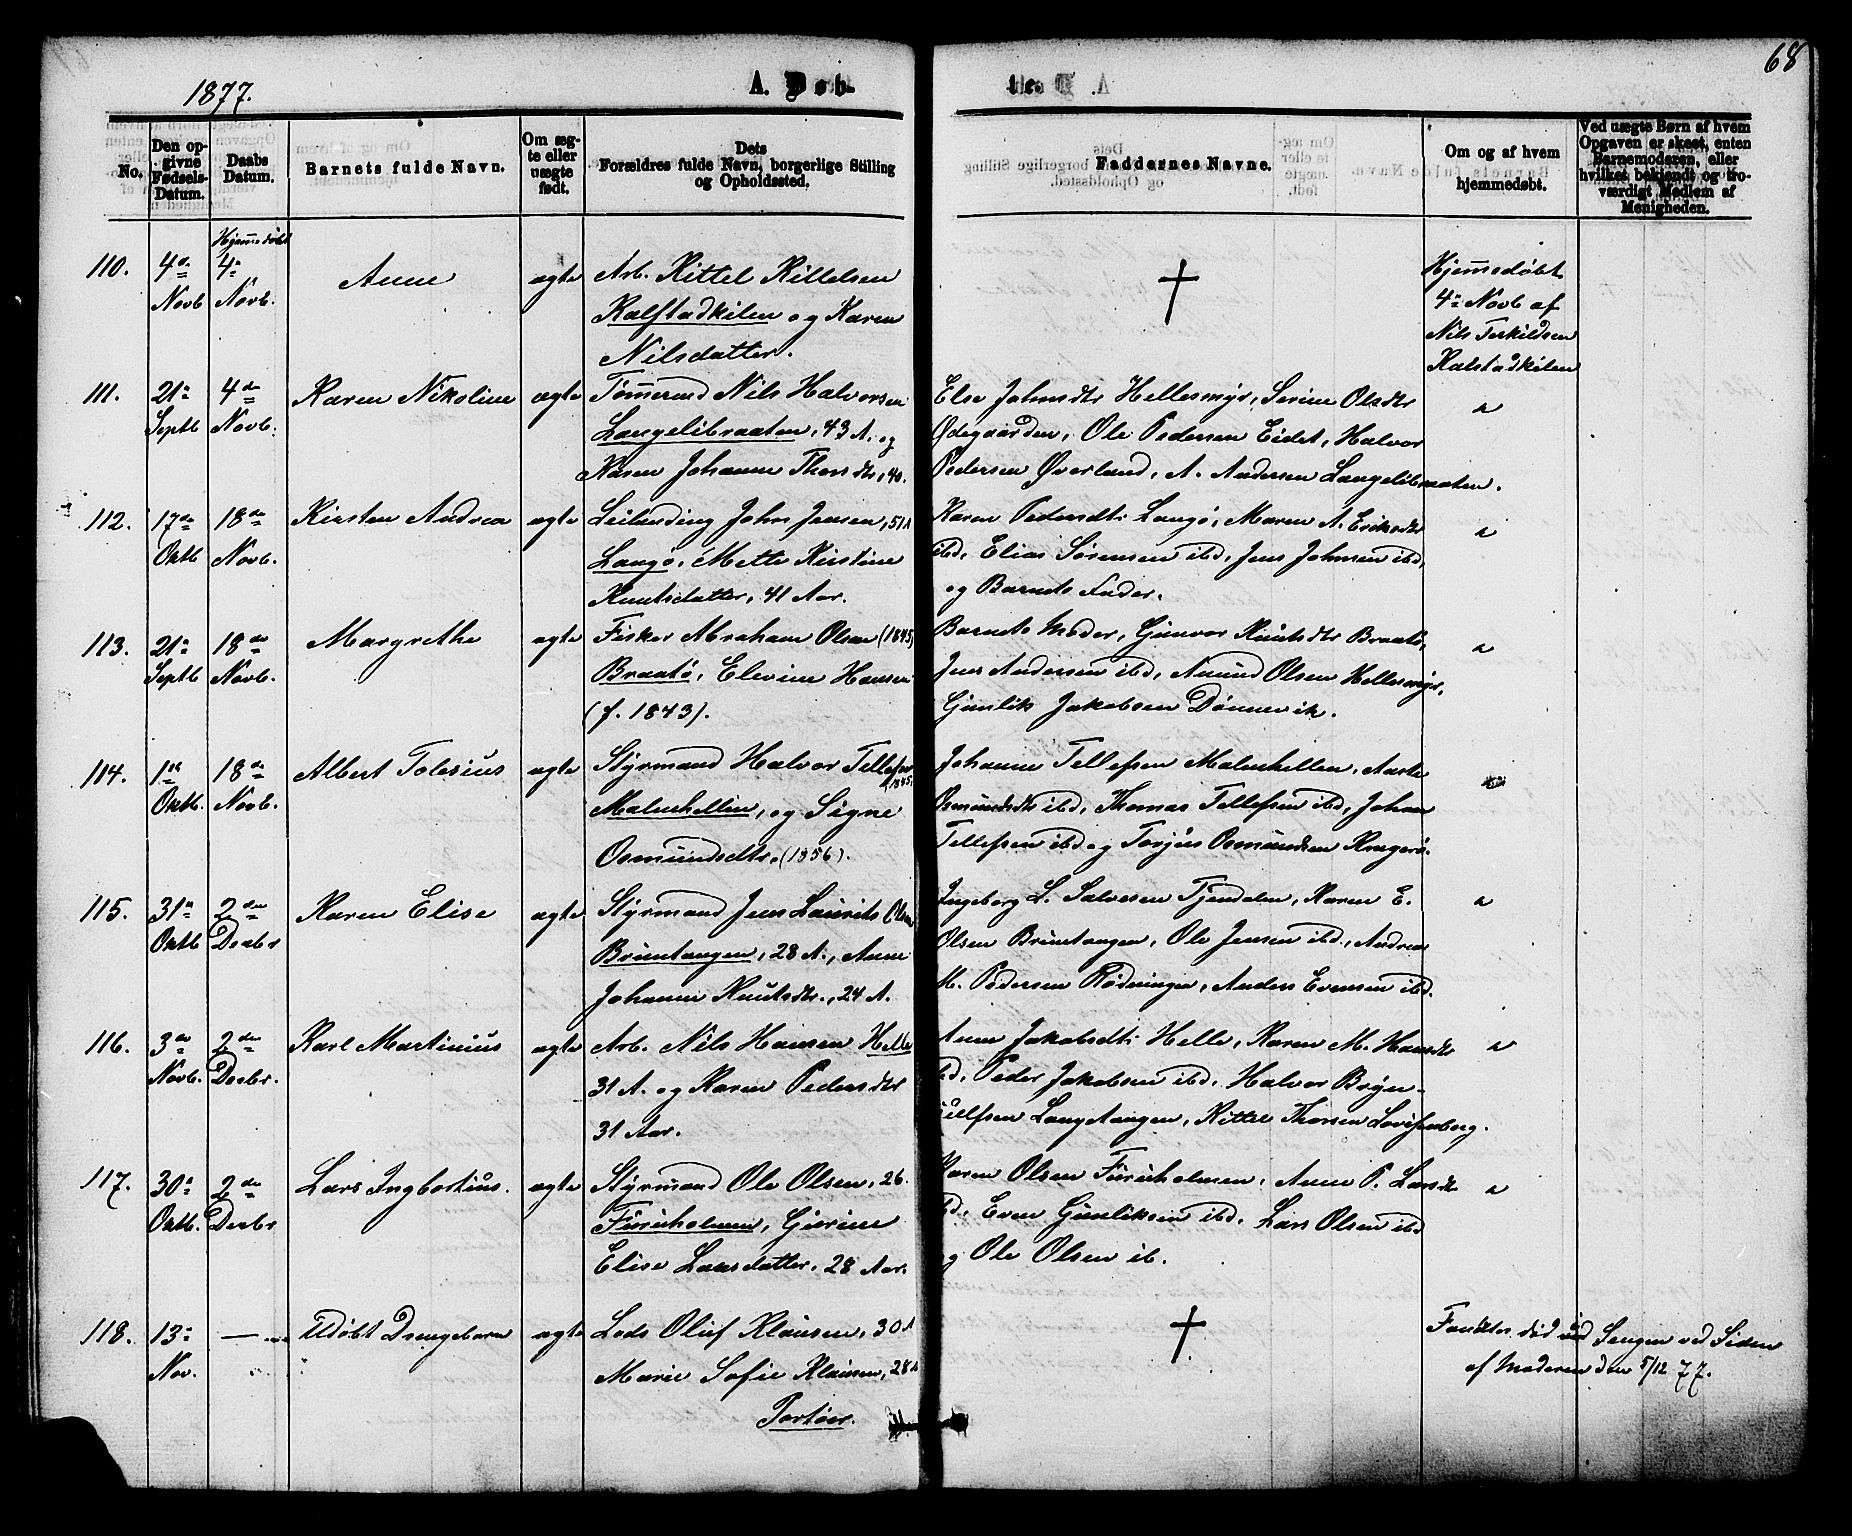 68
1877.
A. Døb-
te.
No.
Den op-
givne
Fødsels-
Datum.
Daabs
Datum.
Barnets fulde Navn.
Om æg-
te eller
uægte
født.
Dets
Forældres fulde Navn, borgerlige Stilling
og Opholdssted.
Faddernes Navne.
Om og af hvem
hjemmedøbt.
Ved uægte Børn af hvem
Opgaven er skeet, enten
Barnemoderen, eller
hvilket bekjendt og tro-
værdigt Medlem af
Menigheden.
110.
4de
Novb
Hjemmedøbt
4de
Novb.
Anne
ægte
Arb. Kittel Kittelsen
Kalstadkilen og Karen
Nilsdatter.
†
Hjemmedøbt
4de Novb af
Nils Terkildsen
Kalstadkilen
111.
21de
Septb
4de
Novb.
Karen Nikoline
ægte
Tømermd Nils Halvorsen
Langelibraaten, 43 A. og
Karen Johanne Thorsdtr, 40.
Else Johnsdtr Hellesmyr, Serine Olsdtr
Ødegaarden, Ole Pedersen Eidet, Halvor
Pedersen Øverland, A. Andersen Langelibraaten.
112.
17de
Oktb
18de
Novb.
Kirsten Andrea
ægte
Leilending John Jensen, 51 A
Langø, Mette Kirstine
Knutsdatter, 41 Aar.
Karen Pedersdtr Langø, Maren A. Eriksdtr
ibd, Elias Sørensen ibd, Jens Johnsen ibd,
og Barnets Fader.
113.
21de
Septb
18de
Novb.
Margrethe
ægte
Fisker Abraham Olsen (1845)
Braatø, Elevine Hansen
(f. 1843).
Barnets Moder, Gunvor Knutsdtr Braatø,
Jens Andersen ibd, Amund Olsen Hellesmyr,
Gunlik Jakobsen Dønnevik.
114.
1ste
Oktb.
18de
Novb.
Albert Tolesius
ægte
Styrmand Halvor Tellefsen
(1845)
Malenhellen, og Signe
Osmundsdtr. (1856).
Johanne Tellefsen Malenhellen, Aaste
Osmundsdtr ibd, Thomas Tellefsen ibd, Johan
Tellefsen ibd og Torjus Osmundsen Kragerø.
115.
31te
Oktb
2den
Decbr
Karen Elise
ægte
Styrmand Jens Laurits Olsen
Bruntangen, 28 A., Anne
Johanne Knutsdtr., 24 A.
Ingeborg L. Salvesen Tjendalen, Karen E.
Olsen Bruntangen, Ole Jensen ibd, Andreas
M. Pedersen Rødningen, Anders Evensen ibd.
116.
3de
Novb.
2den
Decbr.
Karl Martinius
ægte
Arb. Nils Hansen Helle
31 A. og Karen Pedersdtr
31 Aar.
Anne Jakobsdtr Helle, Karen M. Hansdtr
ibd, Peder Jakobsen ibd, Halvor Bryn-
julfsen Langtangen, Kittel Thorsen Lovisenberg.
117.
30te
Oktb.
2den
Decbr
Lars Ingbortius.
ægte
Styrmand Ole Olsen, 26.
Furuholmen, Gurine
Elise Larsdatter, 28 Aar.
Karen Olsen Furuholmen, Anne P. Larsdtr
ibd, Even Gunliksen ibd, Lars Olsen ibd
og Ole Olsen ib.
118.
13de
Nov.
Udøbt Drengebarn
ægte
Lods Oluf Klausen, 30 A
Marie Sofie Klausen, 28 A
Portør.
†
Fandtes død i Sengen ved Siden
af Moderen den 5/12 77.